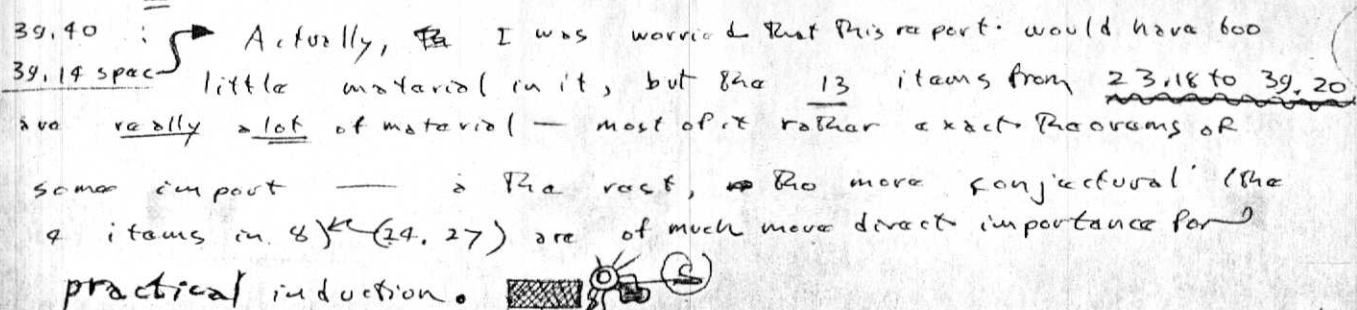 39.40 : Actually, I was worried that this report. would have too
39.14 spec little material in it, but the 13 items from 23.18 to 39.20
are really a lot of material — most of it rather exact theorems of
some import — & the rest, the more conjectural (the
4 items in 8) (24.27) are of much more direct importance for
practical induction.